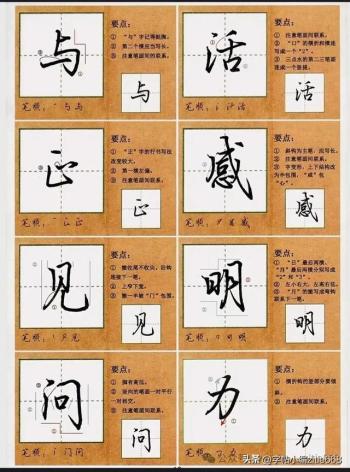 与
要点：
① “与”字记得挺胸。
② 第二个横应当写长。
③ 注意笔画间联系。
与
笔顺：与与
活
要点：
① 注意笔画间联系。
② “口”的横折和横连写成一个“2”。
③ 三点水的第二三笔画连成一个竖提。
活
笔顺：氵汗活
正
要点：
① “正”字的行书写法改变较大。
② 第一横左偏。
③ 注意笔画间联系。
正
笔顺：正正
感
要点：
① 斜钩为主笔，应写长。
② 注意笔画间联系。
③ 字变形，上下结构改为半包围，“咸”包“心”。
感
笔顺：咸感
见
要点：
① 撇收尾不收尖，回钩连接下一笔。
② 上窄下宽。
③ 撇一半被“门”包围。
见
笔顺：见见
明
要点：
① “日”最后两横，“月”最后两横分别写成“2”和“3”。
② 左小右大，左高右低。
③ “月”的撇写成弯钩联系下一笔。
明
笔顺：日明明
问
要点：
① 拥有高位。
② 竖向的笔画一对平行一对相交。
③ 注意笔画间联系。
问
笔顺：门问
力
要点：
① 横折钩的竖部分要倾斜。
② 注意笔画间联系。
力
笔顺：
头条 @字帖小编zhe668